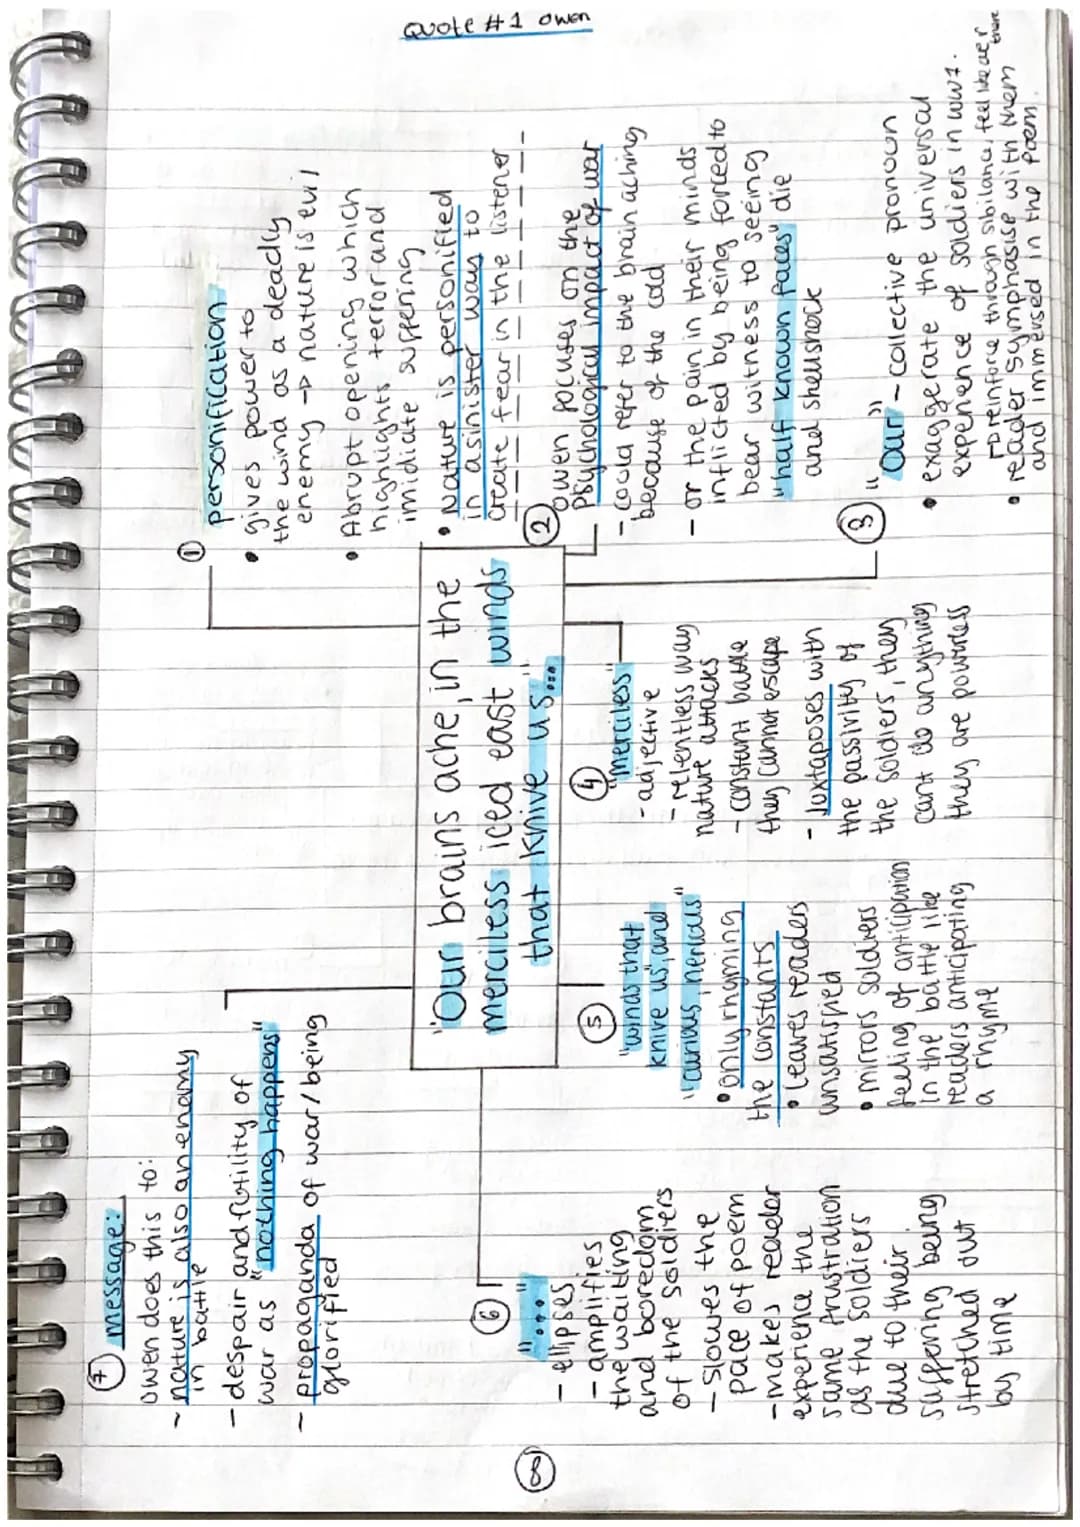 Quote #1 Owen
"Our brains ache, in the
merciless iced east winds
that knive us..."
①
personification
• gives power to
the wind as a deadly
enemy → nature is evil
• Abrupt opening which
highlights terror and
imidiate suffering
• Nature is personified
in a sinister way to
create fear in the listener
②
owen focuses on the
psychological impact of war
- could refer to the brain aching
because of the cold
- or the pain in their minds
inflicted by being forced to
bear witness to seeing
"half known faces" die
and shellshock
③
"Our" - collective pronoun
• exagerate the universal
experience of soldiers in WW1.
reinforce through sibilance, feel like
there
• reader symphasise with them
and immersed in the poem.
④
"merciless"
- adjective
- relentless way
nature attacks
- constant battle
they cannot escape
- Juxtaposes with
the passivity of
the soldiers, they
cant do anything
they are powerless
⑤
"winds that
knive us" and
"curious, nervous"
• only rhyming
the constants
• leaves readers
unsatisfied
• mirrors soldiers
feeling of anticipation
in the battle like
readers anticipating
a rhyme
⑥
"..."
- ellipses
- amplifies
the waiting
and boredom
of the soldiers
- slowes the
pace of poem
- makes reader
experience the
same frustration
as the soldiers
due to their
suffering being
stretched out
by time
⑦ message:
owen does this to:
- nature is also an enamy
in battle
- despair and futility of
war as "nothing happens"
- propaganda of war/being
glorified
⑧